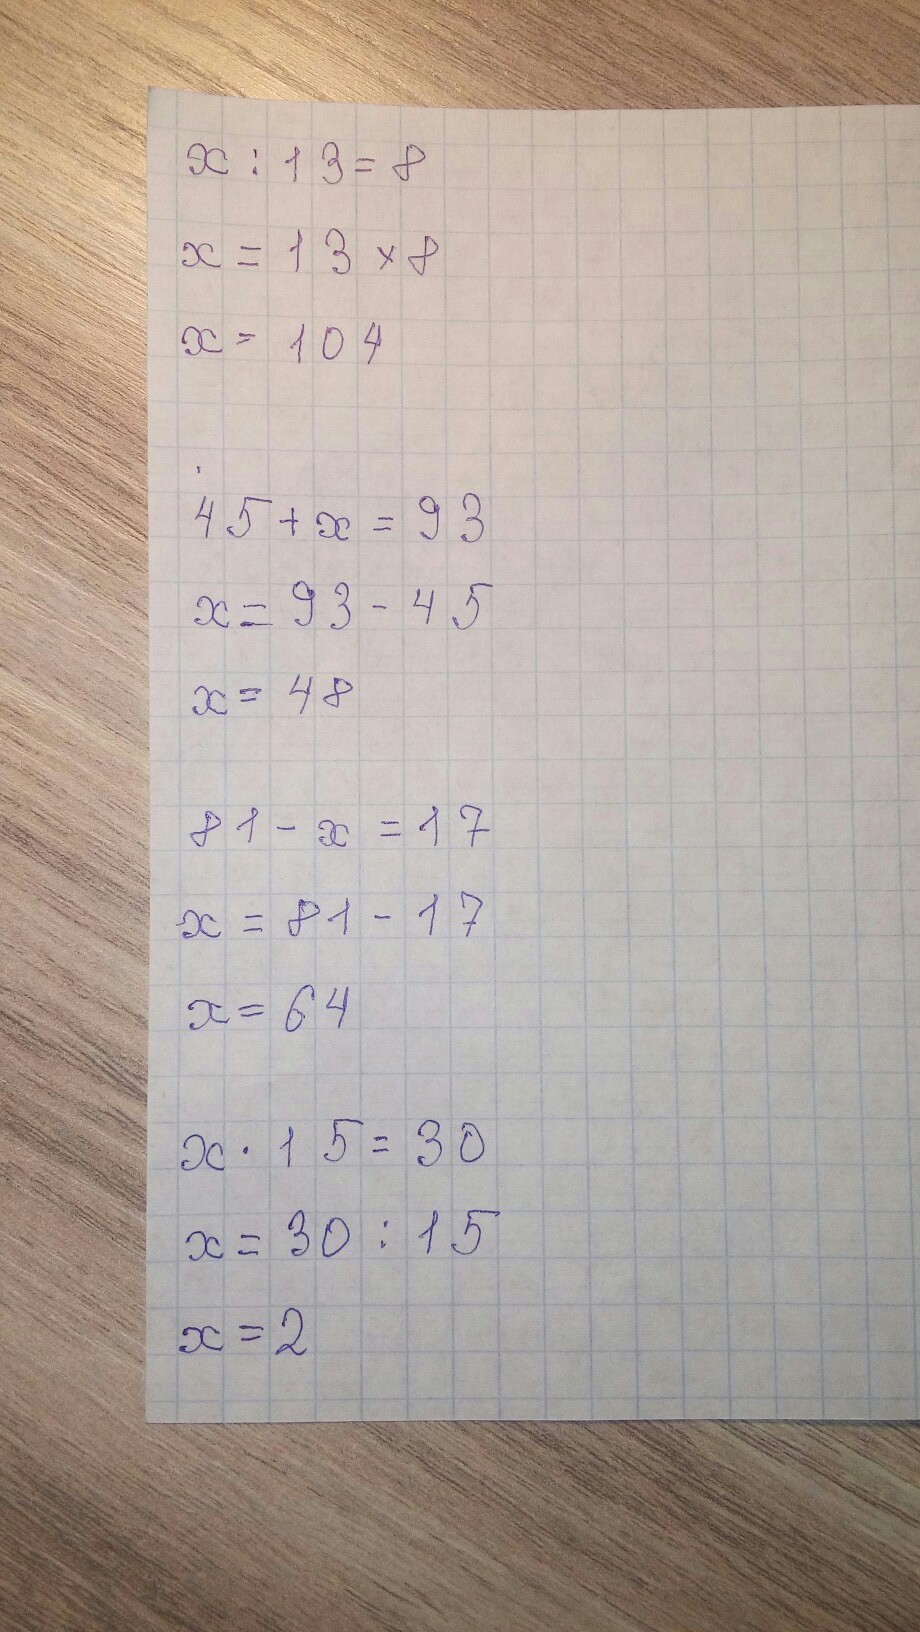 x : 13 = 8
x = 13 × 8
x = 104
45 + x = 93
x = 93 - 45
x = 48
81 - x = 17
x = 81 - 17
x = 64
x · 15 = 30
x = 30 : 15
x = 2